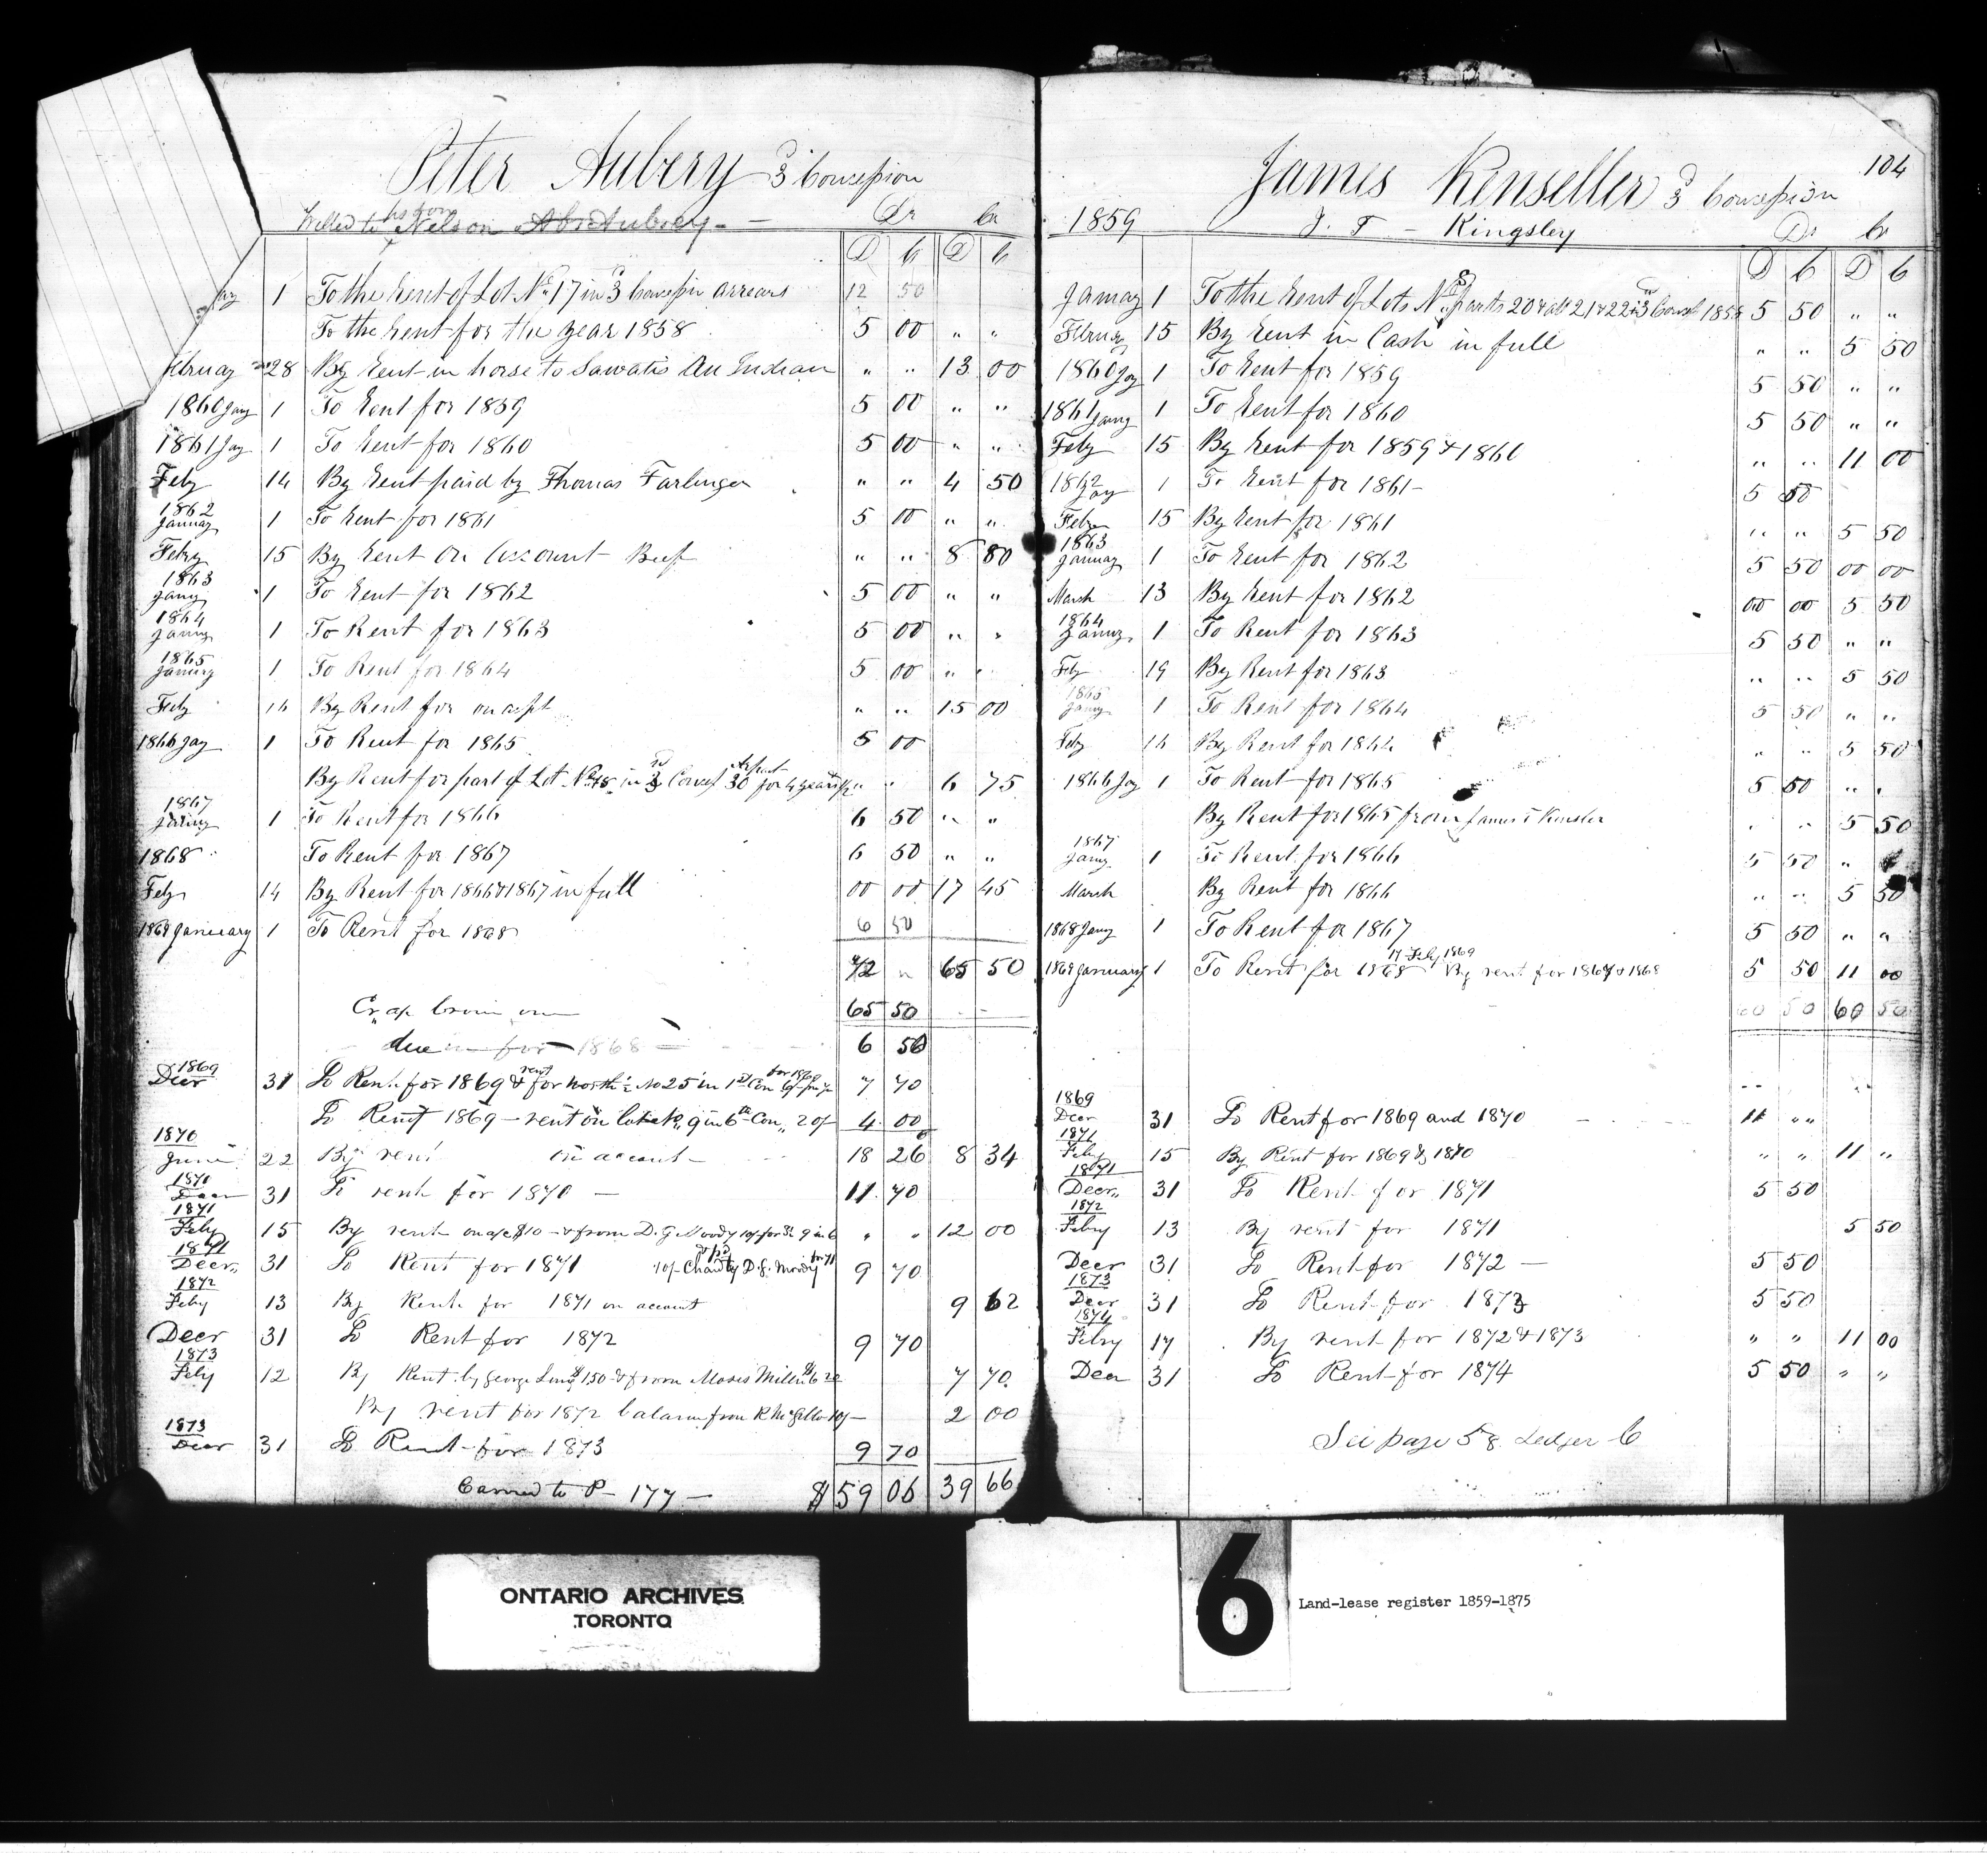 Peter Aubery 3d Concession
Willed to his son Nelson Aubrey - Dr Cr
D C D C
Jay 1 To the Rent of Lot No 17 in 3d Concesn arrears 12 50
To the Rent for the year 1858 5 00 " "
February 28 By Rent in horse to Sawatis An Indian " " 13 00
1860 Jay 1 To Rent for 1859 5 00 " "
1861 Jay 1 To Rent for 1860 5 00 " "
Feby 14 By Rent paid by Thomas Farlinger " " 4 50
1862
January 1 To Rent for 1861 5 00 " "
Feby 15 By Rent on Account Beef " " 8 80
1863
Jany 1 To Rent for 1862 5 00 " "
1864
Jany 1 To Rent for 1863 5 00 " "
1865
Jany 1 To Rent for 1864 5 00 " "
Feby 16 By Rent for on acpt " " 15 00
1866 Jay 1 To Rent for 1865 5 00
By Rent for part of Lot No 18 in 3d Conces 30 for 4 years " " 6 75
1867
Jany 1 To Rent for 1866 6 50 " "
1868 To Rent for 1867 6 50 " "
Feby 14 By Rent for 1866 & 1867 in full 00 00 17 45
1869 January 1 To Rent for 1868 6 50
72 " 65 50
Cr 65 50
due for 1868 6 50
1869
Decr 31 To Rent for 1869 & rent for north ½ No 25 in 1st Con for 1869 7 70
To Rent 1869 - rent on 9 in 6th Con 20/- 4 00
1870
June 22 By rent on account 18 26 8 34
1870
Decr 31 To rent for 1870 - 11 70
1871
Feby 15 By rent on a/c $10 - & from D. G. Moody 10/- for 9 in 6 " " 12 00
1871
Decr 31 To Rent for 1871 10/- Chard by D. G. Moody for 71 9 70
1872
Feby 13 By Rent for 1871 on account 9 62
Decr 31 To Rent for 1872 9 70
1873
Feby 12 By Rent by George Long $1.50 & from Moses Miller $6 20 7 70
By rent for 1872 balance from R McGillo 10/- 2 00
1873
Decr 31 To Rent for 1873 9 70
Carried to P - 177 - $ 59 06 39 66
104
James Kinseller 3d Concession
1859 J. T - Kingsley Dr Cr
D C D C
January 1 To the Rent of Lots Nos parts 20 & all 21 & 22 in 3 Concsn 1858 5 50 " "
February 15 By Rent in Cash in full " " 5 50
1860 Jay 1 To Rent for 1859 5 50 " "
1861 Jany 1 To Rent for 1860 5 50 " "
Feby 15 By Rent for 1859 & 1860 " " 11 00
1862
Jay 1 To Rent for 1861 - 5 50
Feby 15 By Rent for 1861 " " 5 50
1863
January 1 To Rent for 1862 5 50 00 00
March 13 By Rent for 1862 00 00 5 50
1864
Jany 1 To Rent for 1863 5 50 " "
Feby 19 By Rent for 1863 " " 5 50
1865
Jany 1 To Rent for 1864 5 50 " "
Feby 16 By Rent for 1864 " " 5 50
1866 Jay 1 To Rent for 1865 5 50 " "
By Rent for 1865 from James T Kinsler " " 5 50
1867
Jany 1 To Rent for 1866 5 50 "
March By Rent for 1866 " " 5 50
1868 Jany 1 To Rent for 1867 5 50 " "
1869 January 1 To Rent for 1868 17 Feby 1869 By rent for 1867 & 1868 5 50 11 00
60 50 60 50
1869
Decr 31 To Rent for 1869 and 1870 - 11 " "
1871
Feby 15 By Rent for 1869 & 1870 " " 11 "
1871
Decr 31 To Rent for 1871 5 50
1872
Feby 13 By rent for 1871 5 50
Decr 31 To Rent for 1872 - 5 50
1873
Decr 31 To Rent for 1873 5 50
1874
Feby 17 By rent for 1872 & 1873 " " 11 00
Decr 31 To Rent for 1874 5 50 " "
See page 58 Ledger C
ONTARIO ARCHIVES
TORONTO
6
Land-lease register 1859-1875